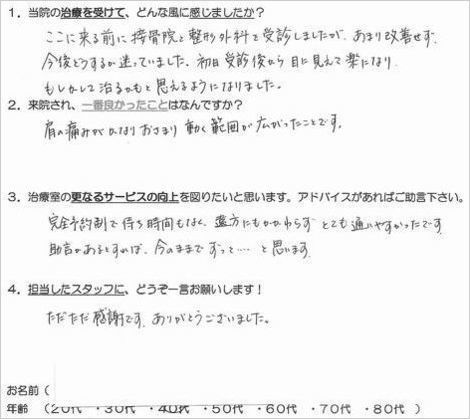 1．当院の治療を受けて、どんな風に感じましたか？
ここに来る前に接骨院と整形外科を受診しましたが、あまり改善せず、
今後どうするか迷っていました。初日受診後から目に見えて楽になり、
もしかして治るかもと思えるようになりました。
2．来院され、一番良かったことはなんですか？
肩の痛みがかなりおさまり動く範囲が広がったことです。
3．治療室の更なるサービスの向上を図りたいと思います。アドバイスがあればご助言下さい。
完全予約制で待ち時間もなく、遠方にもかかわらずとても通いやすかったです
助言があるとすれば、今のままでずって…と思います
4．担当したスタッフに、どうぞ一言お願いします！
ただただ感謝です。ありがとうございました。
お名前（
年齢 （20代 ・30代 ・40代 ・50代 ・60代 ・70代 ・80代 ）